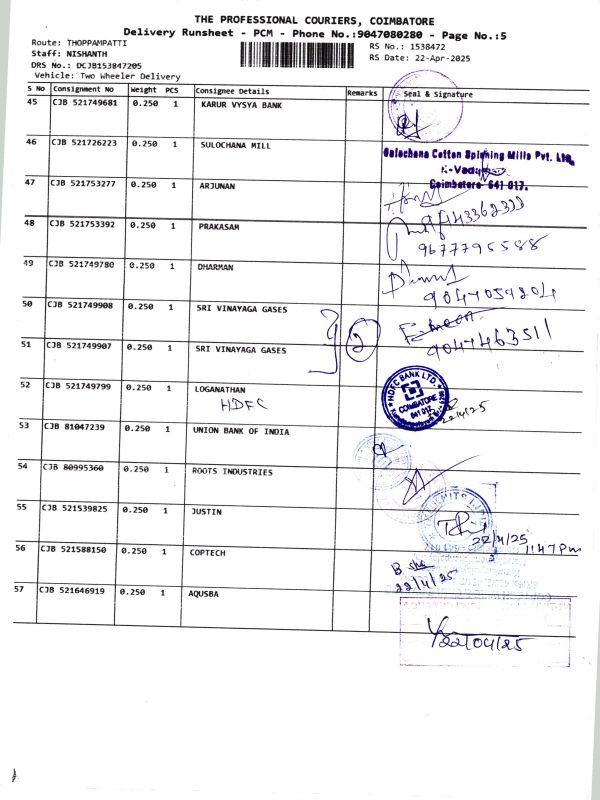 THE PROFESSIONAL COURIERS, COIMBATORE
Delivery Runsheet - PCM - Phone No.:9047080280 - Page No.:5
Route: THOPPAMPATTI
RS No.: 1538472
Staff: NISHANTH
RS Date: 22-Apr-2025
DRS No.: DCJB153847205
Vehicle: Two Wheeler Delivery
S No Consignment No Weight PCS Consignee Details Remarks Seal & Signature
45 CJB 521749681 0.250 1 KARUR VYSYA BANK
46 CJB 521726223 0.250 1 SULOCHANA MILL
Sulochana Cotton Spinning Mills Pvt. Ltd.,
Coimbatore-641 017.
47 CJB 521753277 0.250 1 ARJUNAN
9443362333
48 CJB 521753392 0.250 1 PRAKASAM
9677795588
49 CJB 521749780 0.250 1 DHARMAN
9047054204
50 CJB 521749908 0.250 1 SRI VINAYAGA GASES
2
51 CJB 521749907 0.250 1 SRI VINAYAGA GASES
9047463511
52 CJB 521749799 0.250 1 LOGANATHAN
HDFC
HDFC BANK LTD.
COIMBATORE
641 017
22/4/25
53 CJB 81047239 0.250 1 UNION BANK OF INDIA
54 CJB 80995360 0.250 1 ROOTS INDUSTRIES
55 CJB 521539825 0.250 1 JUSTIN
22/4/25
1147 Pm
56 CJB 521588150 0.250 1 COPTECH
22/4/25
57 CJB 521646919 0.250 1 AQUSBA
22/04/25